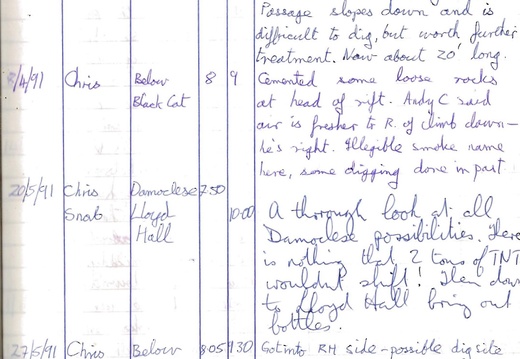 Passage slopes down and is
difficult to dig, but worth further
treatment. Now about 20' long.
/4/91 Chris Below 8 9 Cemented some loose rocks
Black Cat at head of rift. Andy C said
air is fresher to R. of climb down-
he's right. Illegible smoke name
here, some digging done in past
20/5/91 Chris Damoclese 7.50
Snab Lloyd 10.00 A thorough look at all
Hall Damoclese possibilities. There
is nothing that 2 tons of TNT
wouldnt shift! Then down
to Lloyd Hall bring out
bottles.
27/5/91 Chris Below 8.05 9.30 Got into RH side-possible dig site